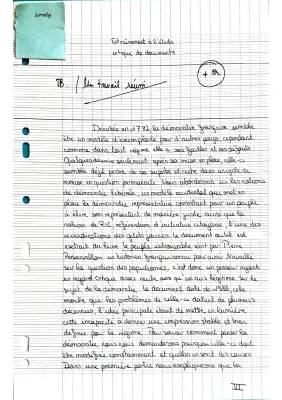 Lovely
Entraînement à l'étude
critique de documents
TB. / Un travail réussi
+
Décrétée en 1792, la démocratie française semble
être un modèle d'exemple pour d'autres pays, cependant
comme dans tout régime elle a ses failles et ses défauts.
Quelques années seulement après sa mise en place, celle-ci
semble déjà perdre de ses sujets et entre dans un cycle de
remise en question permanente. Nous aborderons ici les notions
de démocratie libérale, un modèle occidental qui met en
place la démocratie représentative consistant pour un peuple
à élire son représentant de manière juste ainsi que la
notion de RIC, référendum d'initiative citoyenne, l'une des
revendications des gilets jaunes. Le document qu'il est
extrait du livre le peuple introuvable écrit par Pierre
Rosanvallon un historien français connu pour avoir travaillé
sur la question des populismes, il est donc un penseur ayant
un regard critique assez neutre avec un avis légitime sur le
sujet de la démocratie. Le document date de 1998, cela
montre que les problèmes de celle-ci datent de plusieurs
décennies. L'idée principale étant de mettre en lumière
cette incapacité à donner une impression stable et bien
définie pour le régime. Pour savoir comment penser la
démocratie nous nous demanderons pourquoi celle-ci doit
être modifiée constamment et quelles en sont les causes.
Dans une première partie nous expliquerons que la